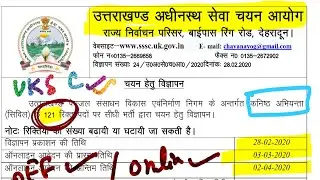 उत्तराखण्ड अधीनस्थ सेवा चयन आयोग
राज्य निर्वाचन परिसर, बाईपास रिंग रोड, देहरादून।
वेबसाइट–www.sssc.uk.gov.in E- mail: chayanayog@gmail.com
फोन न0 0135–2669658 फैक्स न0 0135–2672902
विज्ञापन संख्याः 24/उ0अ0से0च0आ0/2020 दिनांकः 28.02.2020
UKSSSC
चयन हेतु विज्ञापन
जल संसाधन विकास एवं निर्माण निगम के अन्तर्गत कनिष्ठ अभियन्ता
(सिविल) 121 रिक्त पदों पर सीधी भर्ती द्वारा चयन हेतु विज्ञापन।
नोटः रिक्तियों की संख्या बढायी या घटायी जा सकती है।
विज्ञापन प्रकाशन की तिथि 28-02-2020
ऑनलाइन आवेदन की 03-03-2020
ऑनलाइन आवेदन की अन्तिम 02-04-2020
/online